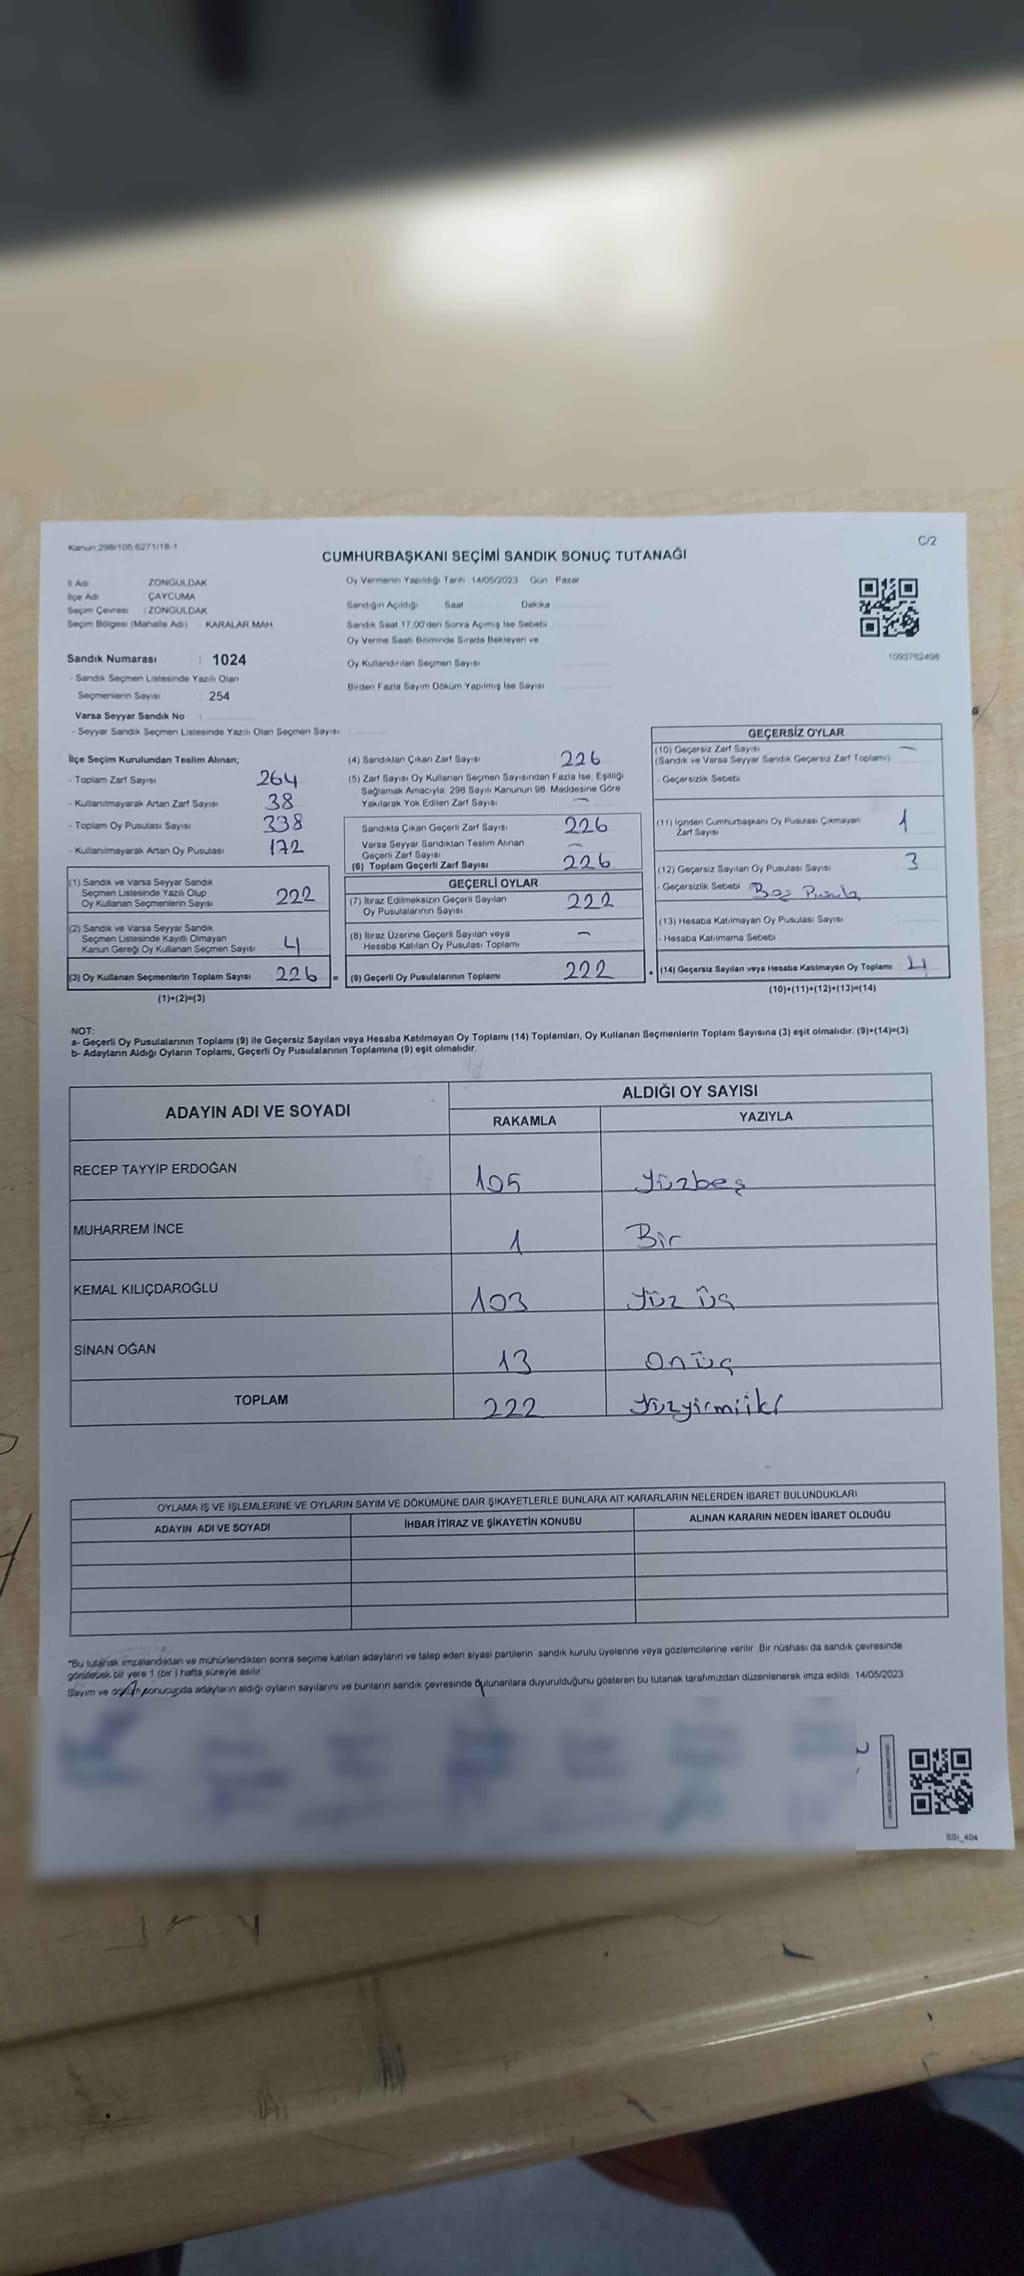 Kanun:298/105,6271/18-1
C/2
CUMHURBAŞKANI SEÇİMİ SANDIK SONUÇ TUTANAĞI
İl Adı : ZONGULDAK
İlçe Adı : ÇAYCUMA
Seçim Çevresi : ZONGULDAK
Seçim Bölgesi (Mahalle Adı) : KARALAR MAH.
Sandık Numarası : 1024
- Sandık Seçmen Listesinde Yazılı Olan
Seçmenlerin Sayısı : 254
Varsa Seyyar Sandık No :
- Seyyar Sandık Seçmen Listesinde Yazılı Olan Seçmen Sayısı:
Oy Vermenin Yapıldığı Tarih 14/05/2023 Gün Pazar
Sandığın Açıldığı Saat Dakika
Sandık Saat 17.00'den Sonra Açılmış İse Sebebi :
Oy Verme Saati Bitiminde Sırada Bekleyen ve
Oy Kullandırılan Seçmen Sayısı
Birden Fazla Sayım Döküm Yapılmış İse Sayısı :
1093762498
İlçe Seçim Kurulundan Teslim Alınan;
- Toplam Zarf Sayısı 264
- Kullanılmayarak Artan Zarf Sayısı 38
- Toplam Oy Pusulası Sayısı 338
- Kullanılmayarak Artan Oy Pusulası 172
(1) Sandık ve Varsa Seyyar Sandık
Seçmen Listesinde Yazılı Olup
Oy Kullanan Seçmenlerin Sayısı 222
(2) Sandık ve Varsa Seyyar Sandık
Seçmen Listesinde Kayıtlı Olmayan
Kanun Gereği Oy Kullanan Seçmen Sayısı 4
(3) Oy Kullanan Seçmenlerin Toplam Sayısı 226 =
(1)+(2)=(3)
(4) Sandıktan Çıkan Zarf Sayısı 226
(5) Zarf Sayısı Oy Kullanan Seçmen Sayısından Fazla İse, Eşitliği
Sağlamak Amacıyla, 298 Sayılı Kanunun 98. Maddesine Göre
Yakılarak Yok Edilen Zarf Sayısı —
Sandıkta Çıkan Geçerli Zarf Sayısı 226
Varsa Seyyar Sandıktan Teslim Alınan
Geçerli Zarf Sayısı —
(6) Toplam Geçerli Zarf Sayısı 226
GEÇERLİ OYLAR
(7) İtiraz Edilmeksizin Geçerli Sayılan
Oy Pusulalarının Sayısı 222
(8) İtiraz Üzerine Geçerli Sayılan veya
Hesaba Katılan Oy Pusulası Toplamı —
(9) Geçerli Oy Pusulalarının Toplamı 222 +
GEÇERSİZ OYLAR
(10) Geçersiz Zarf Sayısı —
(Sandık ve Varsa Seyyar Sandık Geçersiz Zarf Toplamı)
- Geçersizlik Sebebi
(11) İçinden Cumhurbaşkanı Oy Pusulası Çıkmayan
Zarf Sayısı 1
(12) Geçersiz Sayılan Oy Pusulası Sayısı 3
- Geçersizlik Sebebi Boş Pusula
(13) Hesaba Katılmayan Oy Pusulası Sayısı
- Hesaba Katılmama Sebebi
(14) Geçersiz Sayılan veya Hesaba Katılmayan Oy Toplamı 4
(10)+(11)+(12)+(13)=(14)
NOT:
a- Geçerli Oy Pusulalarının Toplamı (9) ile Geçersiz Sayılan veya Hesaba Katılmayan Oy Toplamı (14) Toplamları, Oy Kullanan Seçmenlerin Toplam Sayısına (3) eşit olmalıdır. (9)+(14)=(3)
b- Adayların Aldığı Oyların Toplamı, Geçerli Oy Pusulalarının Toplamına (9) eşit olmalıdır.
ADAYIN ADI VE SOYADI
ALDIĞI OY SAYISI
RAKAMLA YAZIYLA
RECEP TAYYİP ERDOĞAN 105 Yüzbeş
MUHARREM İNCE 1 Bir
KEMAL KILIÇDAROĞLU 103 Yüz üç
SİNAN OĞAN 13 Onüç
TOPLAM 222 Yüzyirmiiki
OYLAMA İŞ VE İŞLEMLERİNE VE OYLARIN SAYIM VE DÖKÜMÜNE DAİR ŞİKAYETLERLE BUNLARA AİT KARARLARIN NELERDEN İBARET BULUNDUKLARI
ADAYIN ADI VE SOYADI İHBAR İTİRAZ VE ŞİKAYETİN KONUSU ALINAN KARARIN NEDEN İBARET OLDUĞU
"Bu tutanak imzalandıktan ve mühürlendikten sonra seçime katılan adayların ve talep eden siyasi partilerin sandık kurulu üyelerine veya gözlemcilerine verilir. Bir nüshası da sandık çevresinde
görülebilecek bir yere 1 (bir) hafta süreyle asılır.
Sayım ve döküm sonucunda adayların aldığı oyların sayılarını ve bunların sandık çevresinde bulunanlara duyurulduğunu gösteren bu tutanak tarafımızdan düzenlenerek imza edildi. 14/05/2023
SSI_404